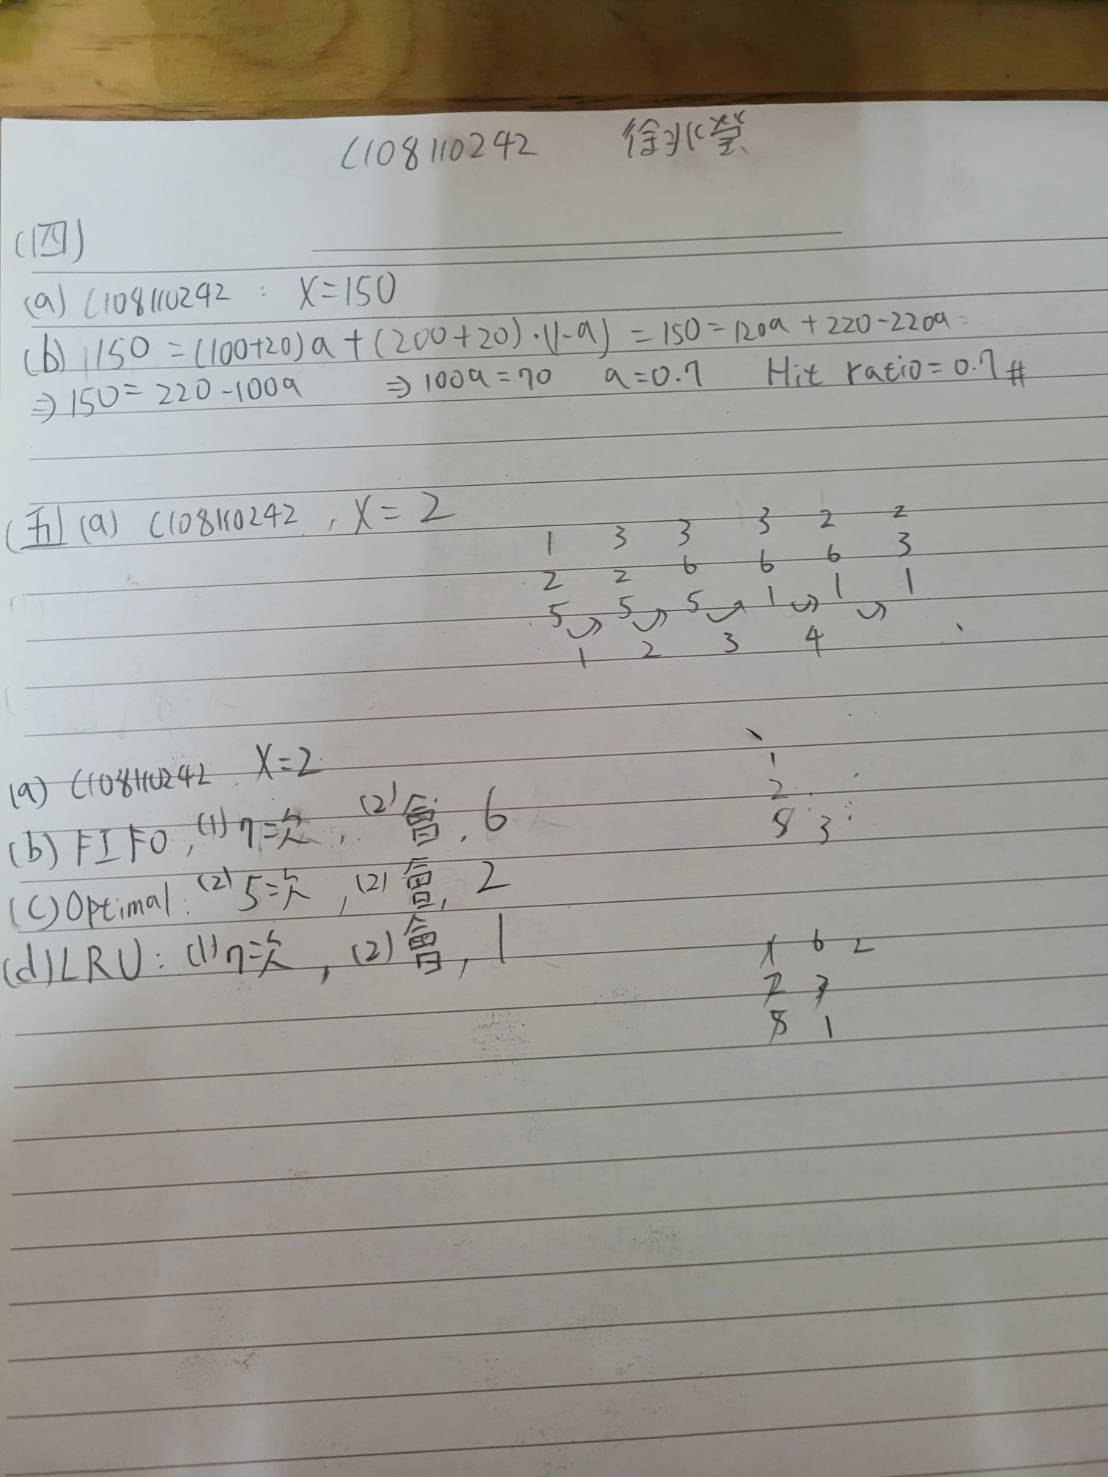 C108110242 徐永瑩
(四)
(a) C108110242 : X=150
(b) 150 = (100+20)a + (200+20)·(1-a) = 150 = 120a + 220-220a =
⇒ 150 = 220-100a ⇒ 100a = 70 a=0.7 Hit ratio = 0.7 #
(五) (a) C108110242 , X = 2
1 3 3 3 2 2
2 2 6 6 6 3
5 5 5 1 1 1
1 2 3 4
(a) C108110242 X=2
(b) FIFO, (1) 7次, (2) 會, 6
(c) Optimal: (2) 5次, (2) 會, 2
(d) LRU: (1) 7次, (2) 會, 1
1
2
5 3
1 6 2
2 3
5 1